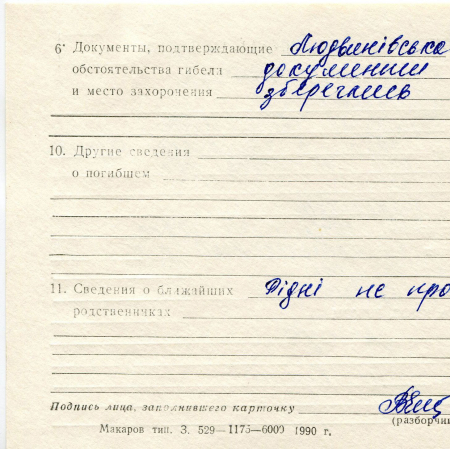 6· Документы, подтверждающие Людвинівська
обстоятельства гибели документи
и место захоронения збереглись
10. Другие сведения
о погибшем
11. Сведения о ближайших Рідні не про
родственниках
Подпись лица, заполнявшего карточку
(разборчи
Макаров тип. З. 529—1175—6000 1990 г,